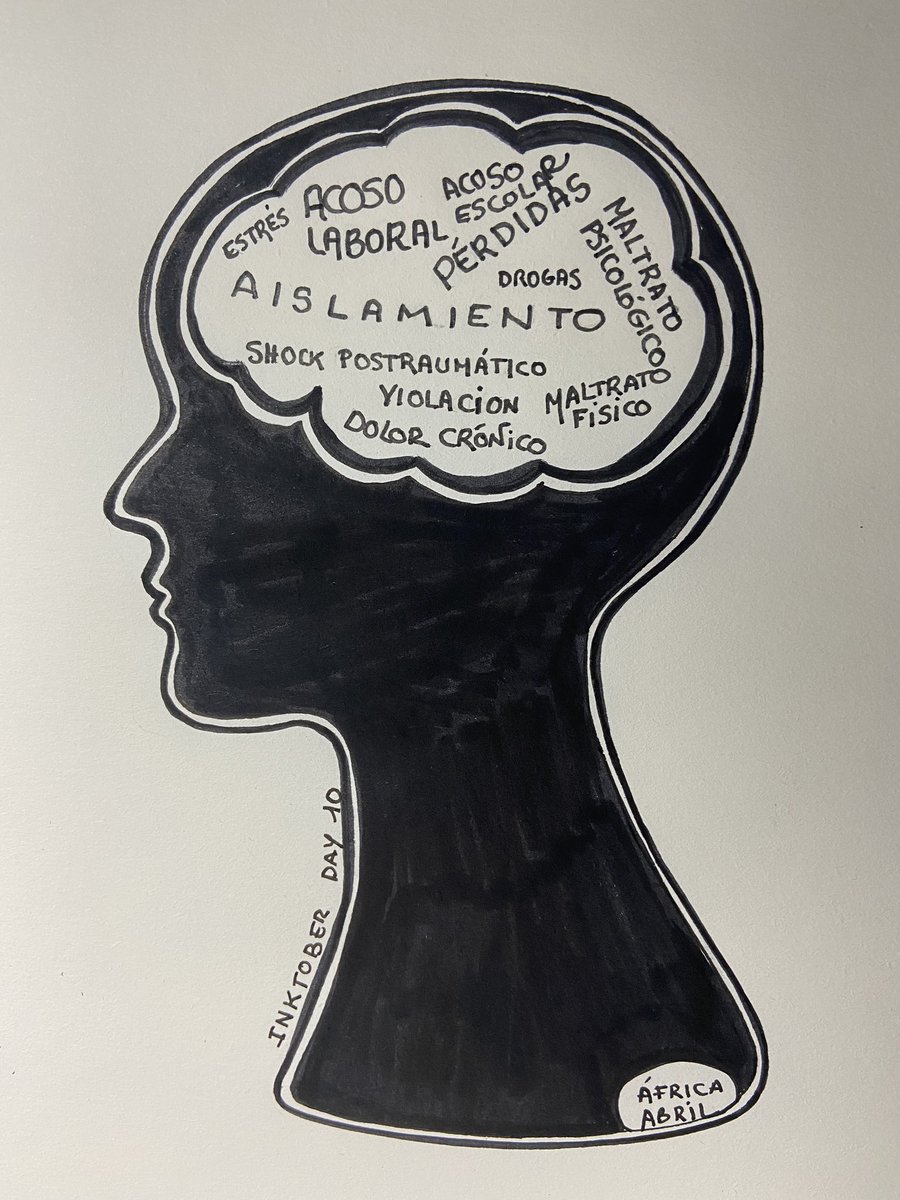 ESTRÉS
ACOSO
LABORAL
ACOSO
ESCOLAR
PÉRDIDAS
DROGAS
MALTRATO
PSICOLÓGICO
AISLAMIENTO
SHOCK POSTRAUMÁTICO
VIOLACION
MALTRATO
FISICO
DOLOR CRÓNICO
INKTOBER DAY 10
ÁFRICA
ABRIL